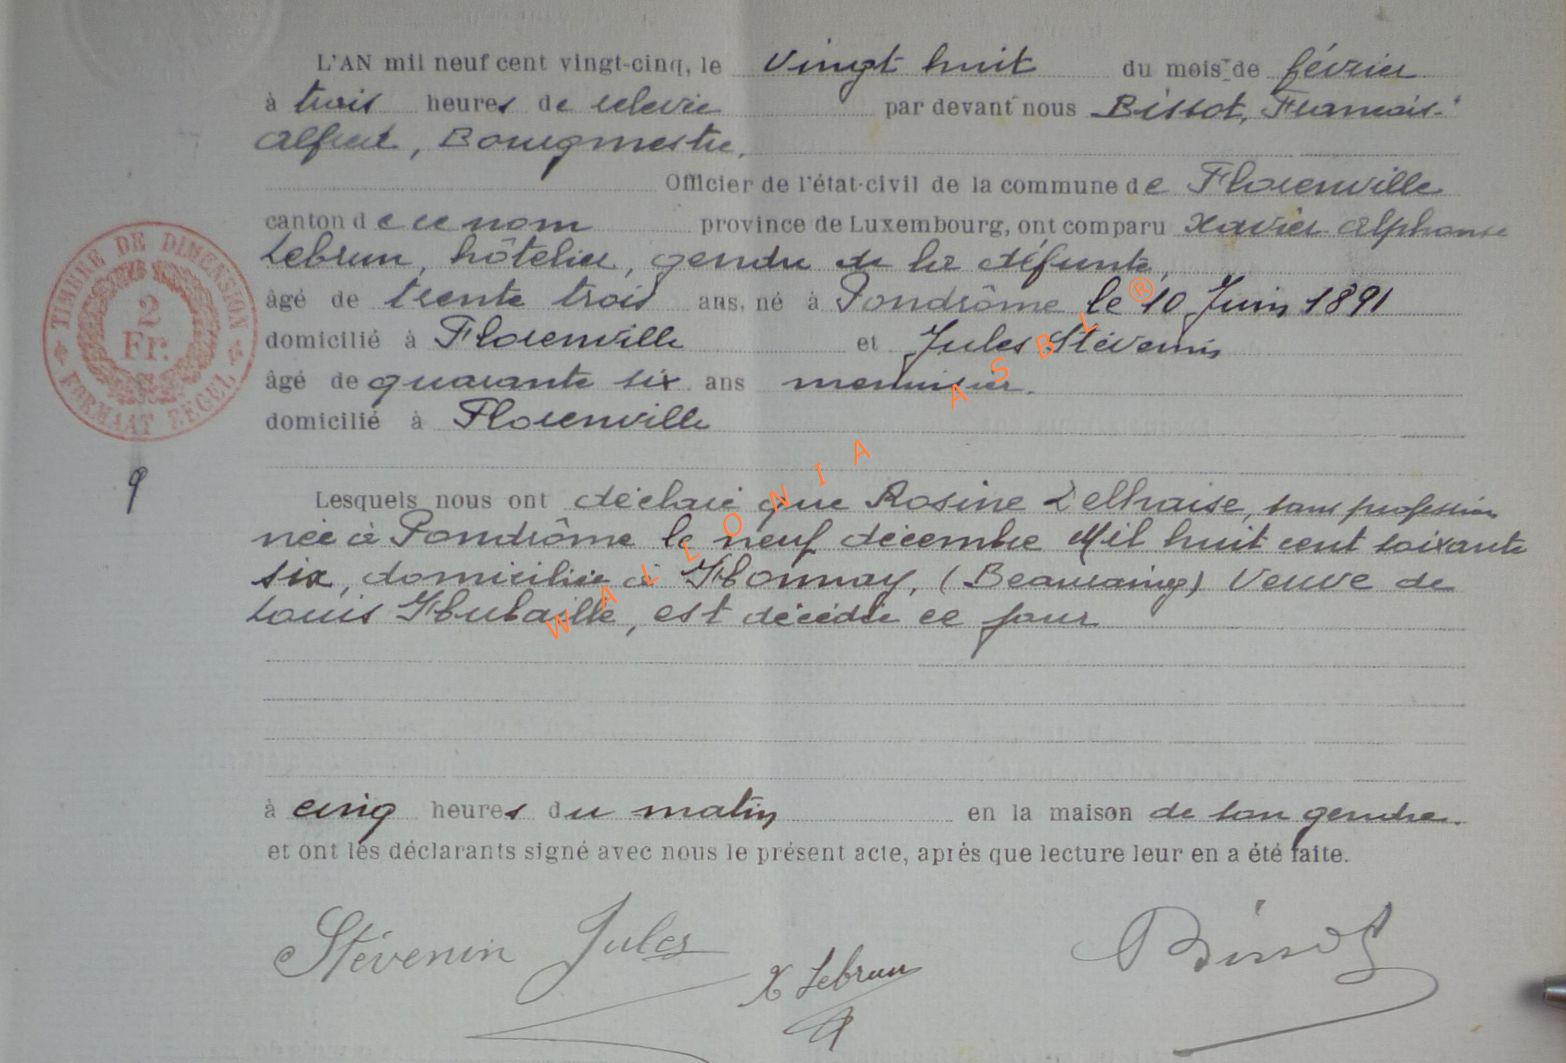 L'AN mil neuf cent vingt-cinq, le vingt huit du mois de février
à trois heures de relevée par devant nous Bissot, François-
Alfred, Bourgmestre,
Officier de l'état-civil de la commune de Florenville
canton de ce nom province de Luxembourg, ont comparu Xavier Alphonse
Lebrun, hôtelier, gendre de la défunte,
âgé de trente trois ans, né à Pondrôme le 10 Juin 1891
domicilié à Florenville et Jules Stévenin
âgé de quarante six ans menuisier.
domicilié à Florenville
Lesquels nous ont déclaré que Rosine Delhaise, sans profession
née à Pondrôme le neuf décembre Mil huit cent soixante
six, domiciliée à Honnay, (Beauraing) Veuve de
Louis est décédée ce jour
à cinq heures du matin en la maison de son gendre.
et ont les déclarants signé avec nous le présent acte, après que lecture leur en a été faite.
Stévenin Jules
X Lebrun
Bissot
TIMBRE DE DIMENSION
2
Fr.
FORMAAT ZEGEL
9
WALLONIA ASBL ®